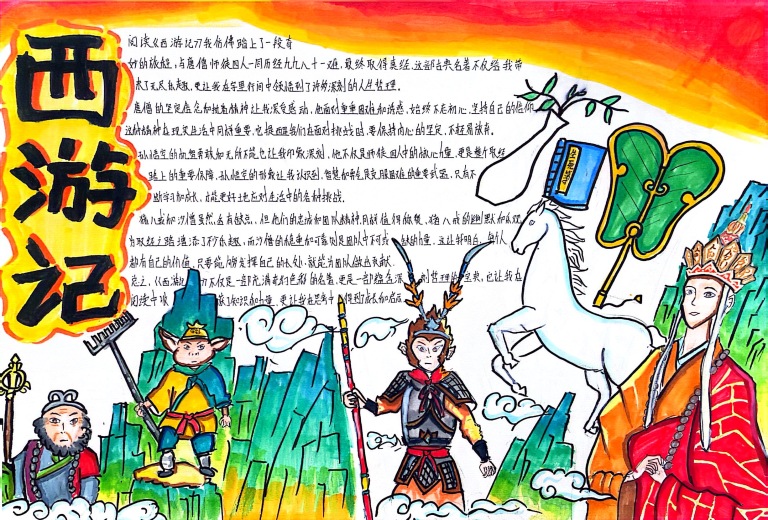 西游记
阅读《西游记》我仿佛踏上了一段奇
妙的旅程,与唐僧师徒四人一同历经九九八十一难,最终取得真经。这部古典名著不仅给我带
来了无尽的乐趣,更让我在字里行间中领悟到了许多深刻的人生哲理。
唐僧的坚定信念和执着精神让我深受感动,他面对重重困难和诱惑,始终不忘初心,坚持自己的信仰
这种精神在现实生活中同样重要,它提醒我们在面对挑战时,要保持内心的坚定,不轻易放弃。
孙悟空的机智勇敢和无所不能也让我印象深刻,他不仅是师徒四人中的核心力量,更是整个取经
路上的重要保障。孙悟空的形象让我认识到,智慧和勇气是克服困难的重要武器,只有不
断学习和成长,才能更好地应对生活中的各种挑战。
猪八戒和沙僧虽然各有缺点,但他们的忠诚和团队精神同样值得
为取经之路增添了不少乐趣,而沙僧的稳重和可靠则是团队中不可或缺的力量,这让我明白,每个人
都有自己的价值,只要能够发挥自己的长处,就能为团队做出贡献。
总之,《西游记》不仅是一部充满奇幻色彩的名著,更是一部蕴含深刻哲理的宝典,它让我在
阅读中收获了知识和力量,更让我在思考中得到了成长和启示